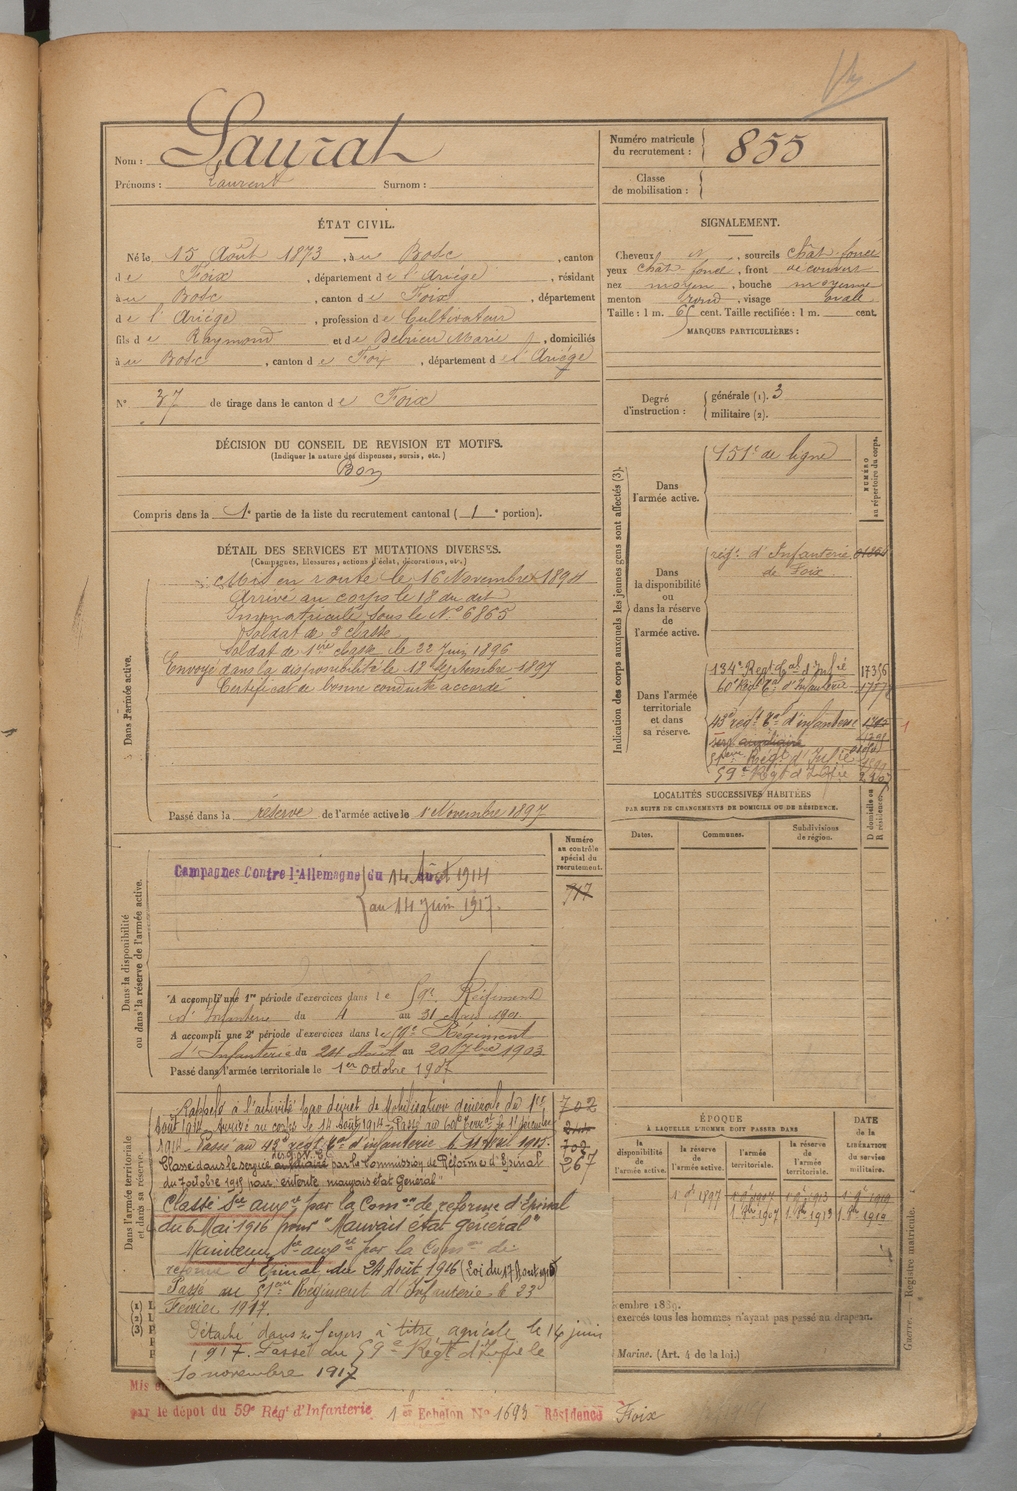 Nom : Laurat
Prénoms : Laurent Surnom :
Numéro matricule du recrutement : 855
Classe de mobilisation :
ÉTAT CIVIL.
Né le 15 Août 1873, à u Bosc, canton
d e Foix, département d e l'Ariège, résidant
à u Bosc, canton d e Foix, département
d e l'Ariège, profession d e Cultivateur
fils d e Raymond et d e Debrieu Marie, domiciliés
à u Bosc, canton d e Foix, département d e l'Ariège
N° 37 de tirage dans le canton d e Foix
DÉCISION DU CONSEIL DE REVISION ET MOTIFS.
(Indiquer la nature des dispenses, sursis, etc.)
Bon
Compris dans la 1e partie de la liste du recrutement cantonal ( 1e portion).
SIGNALEMENT.
Cheveux et, sourcils chât. foncé
yeux chât. foncé, front découvert
nez moyen, bouche moyenne
menton rond, visage ovale
Taille : 1 m. 65 cent. Taille rectifiée : 1 m. cent.
MARQUES PARTICULIÈRES :
Degré d'instruction : générale (1). 3
militaire (2).
DÉTAIL DES SERVICES ET MUTATIONS DIVERSES.
(Campagnes, blessures, actions d'éclat, décorations, etc.)
Dans l'armée active.
Mis en route le 16 Novembre 1894
Arrivé au corps le 18 du dit
Immatriculé sous le N° 6865
Soldat de 2e classe
Soldat de 1ère classe le 22 Juin 1896
Envoyé dans la disponibilité le 18 Septembre 1897
Certificat de bonne conduite accordé
Passé dans la réserve de l'armée active le 1er Novembre 1897
Indication des corps auxquels les jeunes gens sont affectés (3).
NUMÉRO au répertoire du corps.
Dans l'armée active.
151e de ligne
Dans la disponibilité ou dans la réserve de l'armée active.
régt d'Infanterie
de Foix
Dans l'armée territoriale et dans sa réserve.
134e Régt Tal d'Infrie 17356
60e Régt Tal d'Infanterie
43e regt Tal d'infanterie
serv. auxiliaire
51ème Régt d'Infrie
59e Régt d'Infrie
LOCALITÉS SUCCESSIVES HABITÉES
PAR SUITE DE CHANGEMENTS DE DOMICILE OU DE RÉSIDENCE.
Dates.
Communes.
Subdivisions de région.
D domicile ou R résidence.
Dans la disponibilité ou dans la réserve de l'armée active.
Numéro au contrôle spécial du recrutement.
Campagnes Contre l'Allemagne du 14 Août 1914
au 14 Juin 1917.
917
A accompli une 1re période d'exercices dans l e 59e Régiment
d'Infanterie du 4 au 31 Mars 1901
A accompli une 2e période d'exercices dans l e 59e Régiment
d'Infanterie du 24 Août au 20 7bre 1903
Passé dans l'armée territoriale le 1er Octobre 1907
Dans l'armée territoriale et dans sa réserve.
Rappelé à l'activité par décret de Mobilisation générale du 1er
Août 1914. Arrivé au corps le 14 Août 1914. Passé au 60e Terral le 1er Décembre
1914. Passé au 43e regt Tal d'infanterie le 11 Mai 1915.
Classé dans le service auxiliaire par la Commission de Réforme d'Epinal
du 7 octobre 1915 pour "entérite, mauvais état Général"
702
244
702
267
Classé Sce auxre par la Comon de reforme d'Epinal
du 6 Mai 1916 pour "Mauvais état général"
Maintenu Sce auxre par la Comon de
reforme d'Epinal du 24 Août 1916 (Loi du 17 Août 1915)
Passé au 51ème Régiment d'Infanterie le 23
Fevrier 1917.
Détaché dans ses foyers à titre agricole le 14 juin
1917. Passé au 59e Régt d'Infrie le
10 novembre 1917
ÉPOQUE
À LAQUELLE L'HOMME DOIT PASSER DANS
la disponibilité de l'armée active.
la réserve de l'armée active.
l'armée territoriale.
la réserve de l'armée territoriale.
DATE de la LIBÉRATION du service militaire.
1 9bre 1897
1 8bre 1907 1 8bre 1913 1 8bre 1919
cembre 1889.
exercés tous les hommes n'ayant pas passé au drapeau.
Marine. (Art. 4 de la loi.)
Guerre. — Registre matricule.
Mis
par le dépot du 59e Régt d'Infanterie 1er Echelon No 1693 Résidence Foix